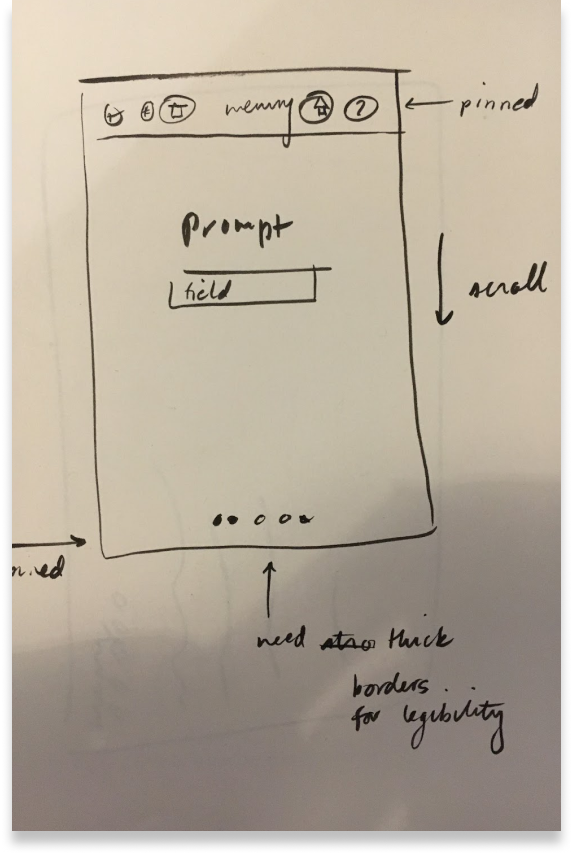 memory ?
pinned
Prompt
field
scroll
need thick
borders . .
for legibility